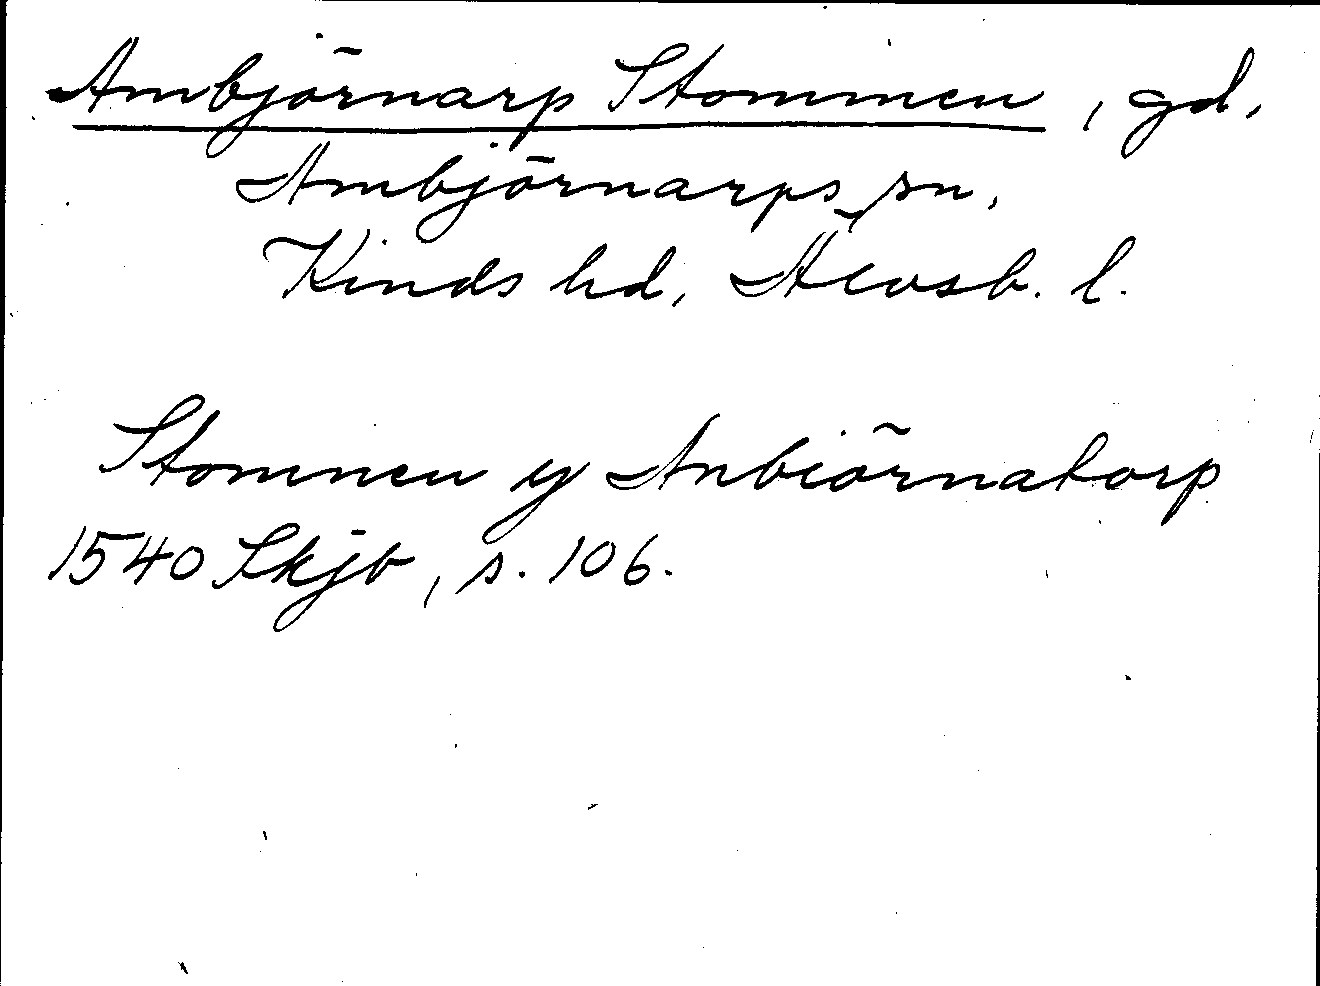 Ambjörnarp Stommen, gd,
Ambjörnarps sn,
Kinds hd, Älvsb. l.
Stommen y Anbiörnatorp
1540 Skjb, s. 106.